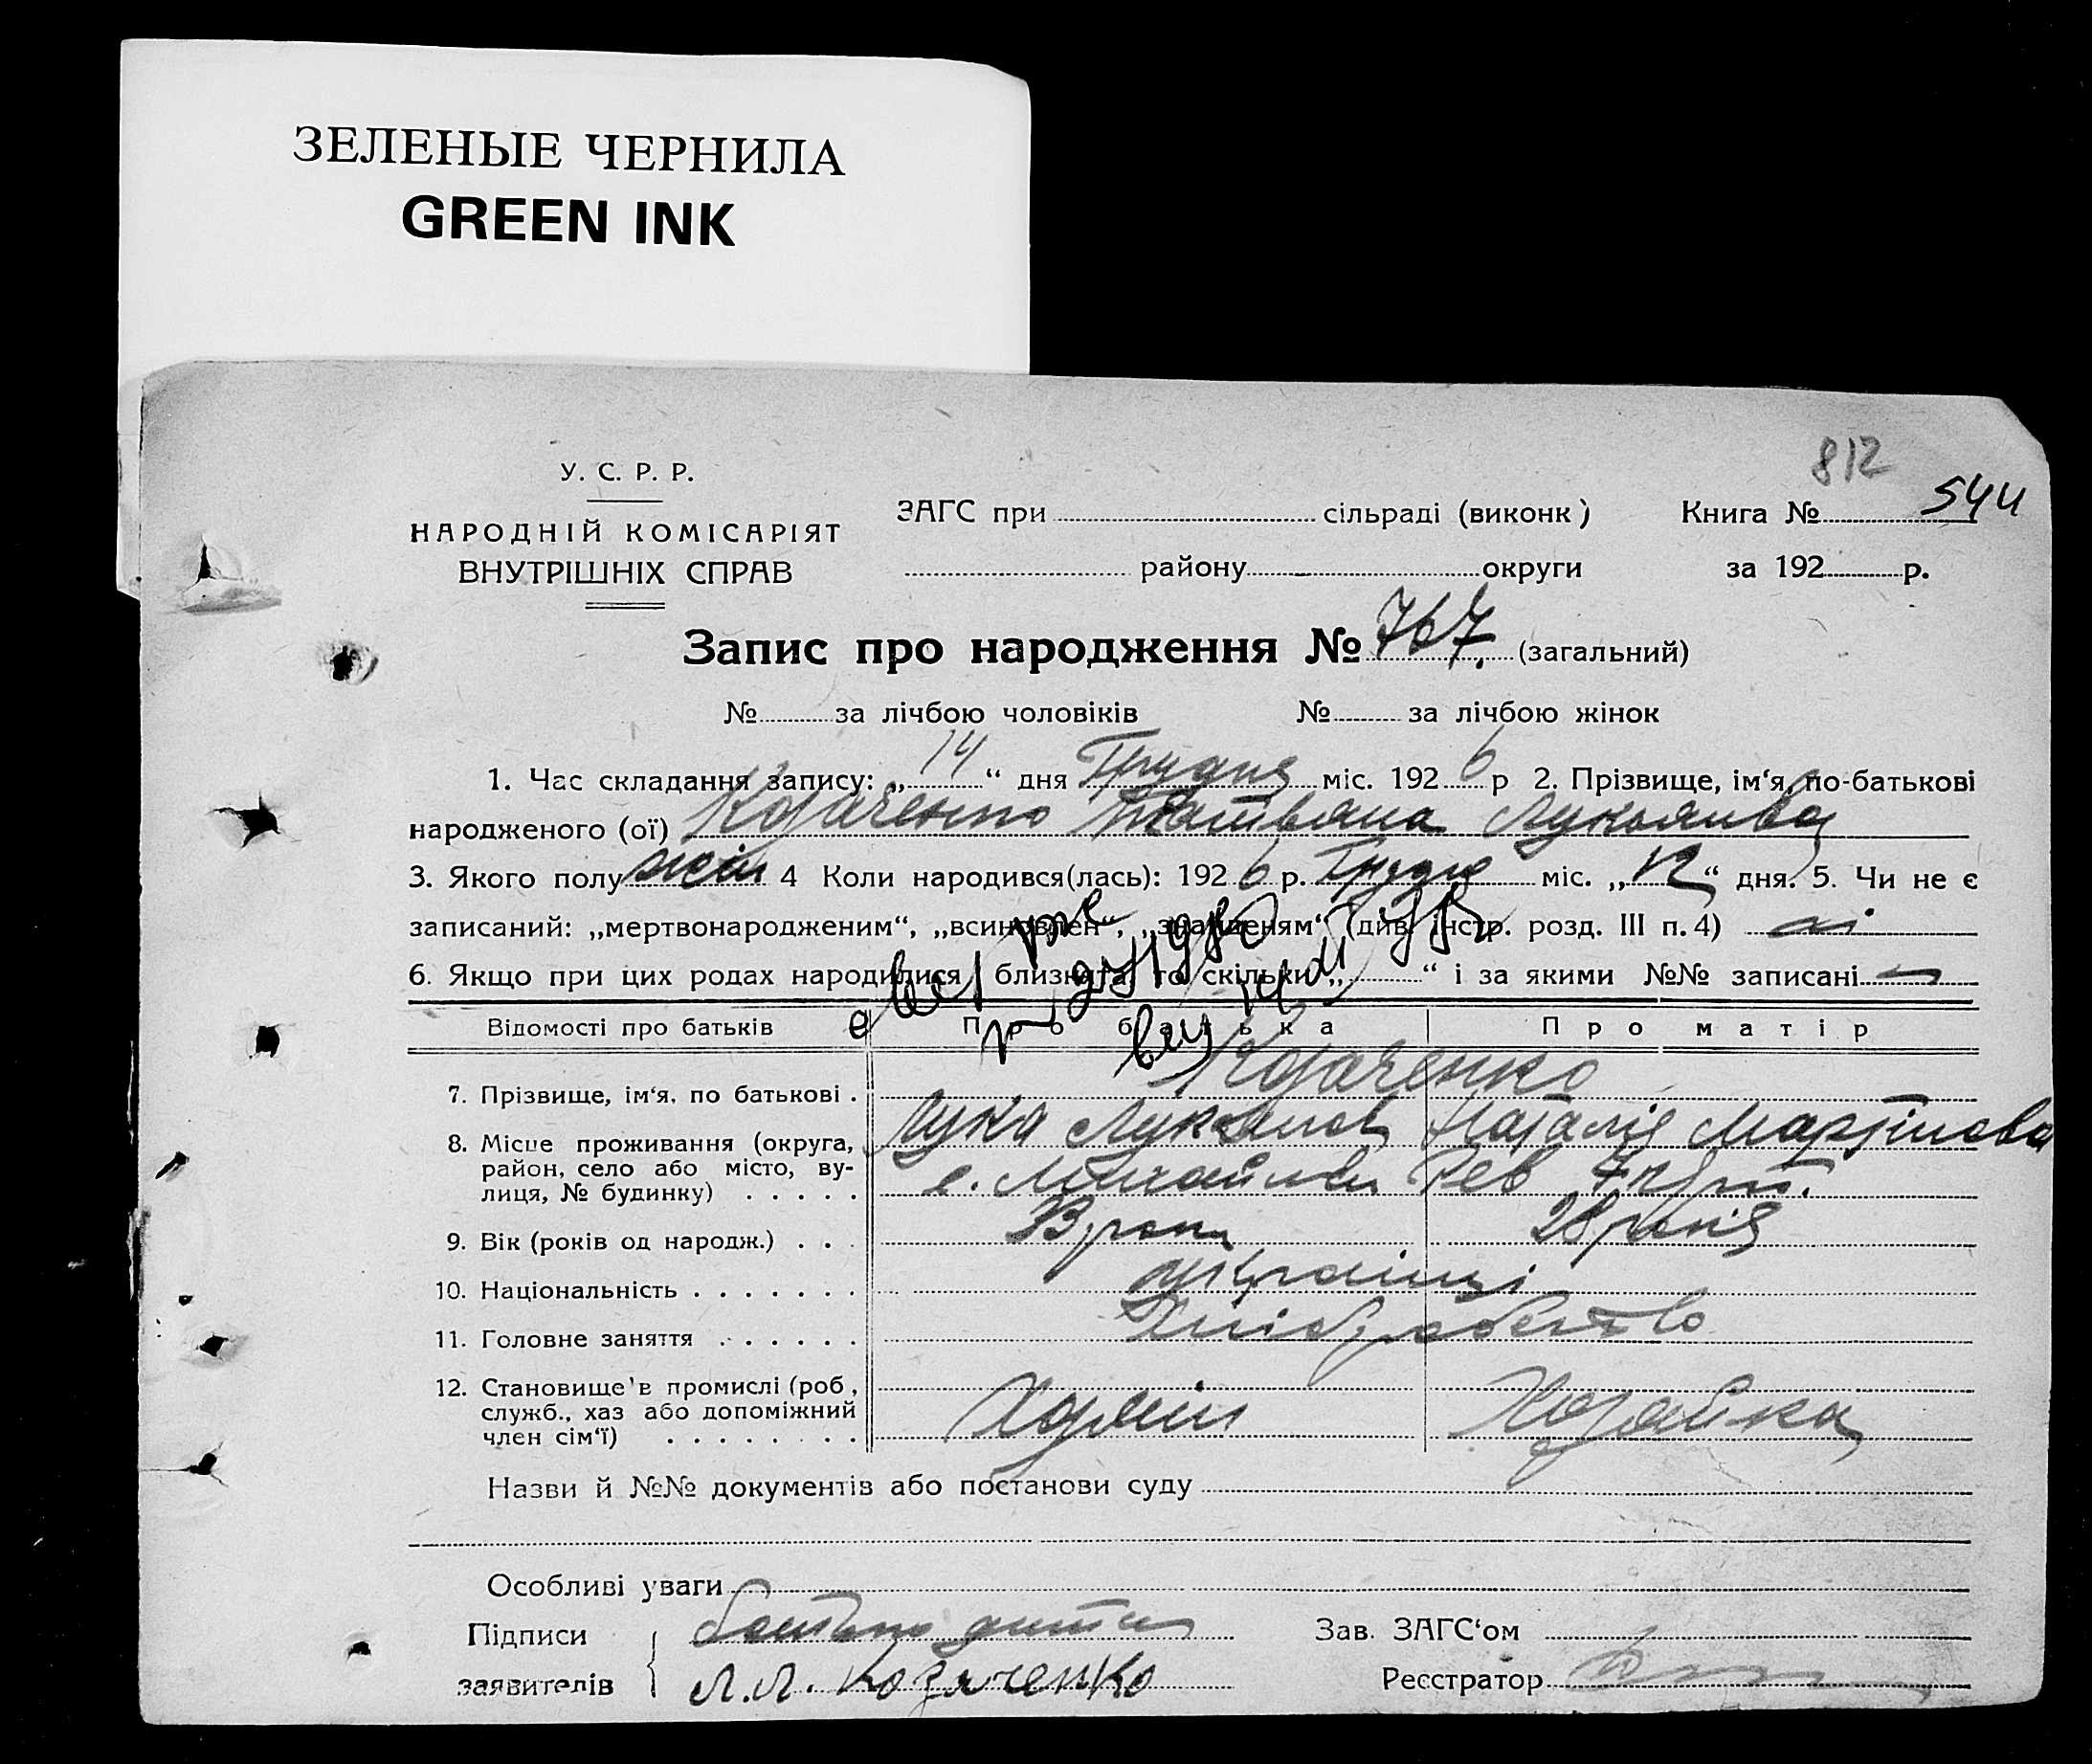 ЗЕЛЕНЫЕ ЧЕРНИЛА
GREEN INK
812
У. С. Р. Р.
НАРОДНІЙ КОМІСАРІЯТ
ВНУТРІШНІХ СПРАВ
ЗАГС при сільраді (виконк)
Книга № 544
району округи
за 192 р.
Запис про народження № 767. (загальний)
№ за лічбою чоловіків № за лічбою жінок
1. Час складання запису: „14“ дня Грудня міс. 1926 р 2. Прізвище, ім‘я, по-батькові
народженого (ої) Козаченко Татьяна Лукьянова
3. Якого полу жін 4 Коли народився(лась): 1926 р. Грудня міс. „12“ дня. 5. Чи не є
записаний: „мертвонародженим“, „всиновлен“, „знайденям“ (див. інстр. розд. III п. 4) ні
6. Якщо при цих родах народилися близнята, то скільки „ “ і за якими №№ записані
Відомості про батьків Про батька Про матір
Козаченко
7. Прізвище, ім‘я, по батькові .
Лука Лукьянов Наталія Мартинова
8. Місце проживання (округа,
район, село або місто, ву-
лиця, № будинку) . . . . .
9. Вік (років од народж.) . . . 28 років
10. Національність . . . . . . . українці
11. Головне заняття . . . . . . Хліборобство
12. Становище в промислі (роб,
служб., хаз або допоміжний
член сім‘ї) . . . . . . . . Хозяїн Хозяйка
Назви й №№ документів або постанови суду
Особливі уваги
Підписи
заявителів
батько дитини
Л. Л. Козаченко
Зав. ЗАГС‘ом
Реєстратор